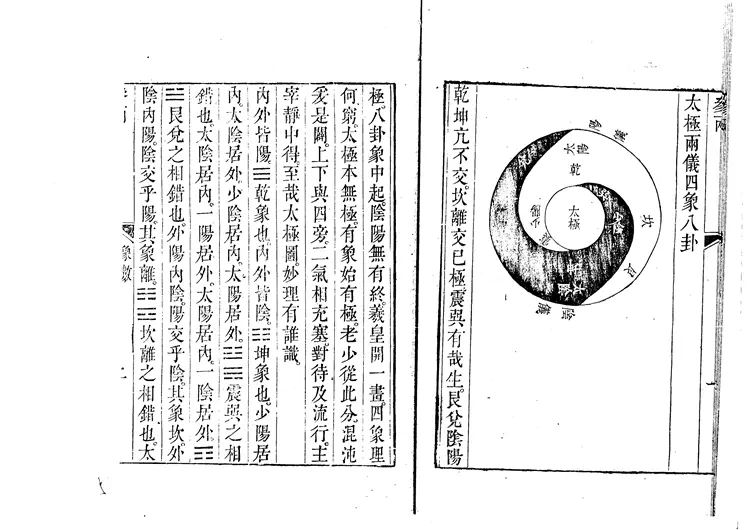 太極兩儀四象八卦
陽儀
太陽
乾
坎
太極
陰儀
乾坤亢不交。坎離交已極。震巽有哉生。艮兌陰陽
極。八卦象中起。陰陽無有終。羲皇開一畫。四象理
何窮。太極本無極。有象始有極。老少從此分。混沌
爰是闢。上下與四旁。二氣相充塞。對待及流行。主
宰靜中得。至哉太極圖。妙理有誰識。
內外皆陽。☰乾象也。內外皆陰。☷坤象也。少陽居
內。太陰居外。少陰居內。太陽居外。☳☴震巽之相
錯也。太陰居內。一陽居外。太陽居內。一陰居外。☶
☱艮兌之相錯也。外陽內陰。陽交乎陰。其象坎。外
陰內陽。陰交乎陽。其象離。☵☲坎離之相錯也。太
象數